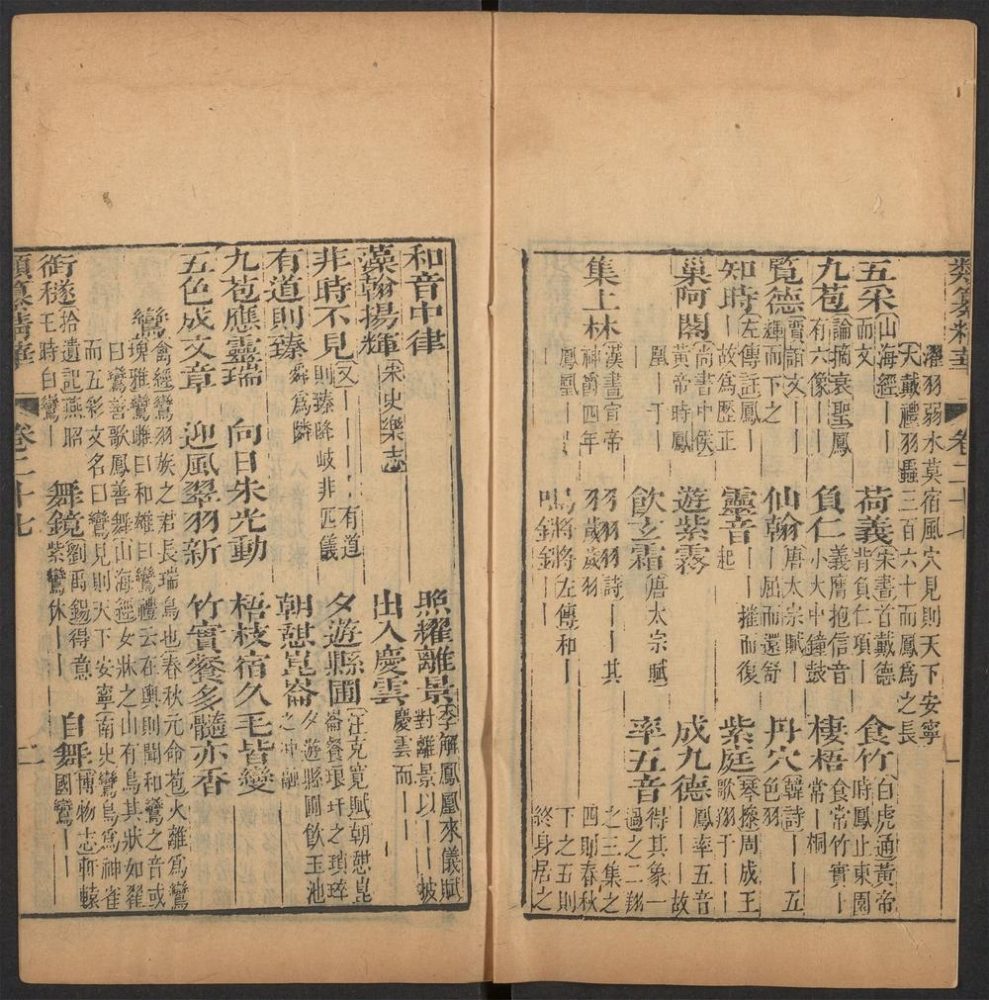 類纂精華 卷二十七
濯羽弱水莫宿風穴見則天下安寧
大戴禮羽蟲三百六十而鳳爲之長
五采 山海經｜｜而文 荷義 宋書首戴德背負仁項｜｜ 食竹 白虎通黃帝時鳳止東園食常竹實
九苞 論摘衰聖鳳有六像｜｜ 負仁 義膺抱信音小大中鐘鼓 棲梧 常｜桐
覽德 賈誼文｜｜輝而下之 仙翰 唐太宗賦｜｜屈而還舒 丹穴 韓詩｜｜五色羽
知時 左傳註鳳｜｜故爲歷正 靈音 ｜｜摧而復起 紫庭 琴操周成王歌翔于｜｜
巢阿閣 尚書中候黃帝時鳳凰｜丁｜ 遊紫霧 成九德 鳳率五音｜｜｜故得其象一
飲玄霜 唐太宗賦 率五音 過之二翔之三集之四則春秋下之五則終身居之
集上林 漢書宣帝神爵四年鳳凰｜｜｜ 羽羽 詩｜｜其羽歲歲羽 鳴將將 左傳和｜鳴鏘鏘
和音中律 照耀離景 李解鳳凰來儀賦對離景以｜｜披慶雲而｜｜
藻翰揚輝 宋史樂志 出入慶雲
非時不見 又｜｜｜｜有道則臻降岐非匹儀舜爲隣 夕遊縣圃 汪克寬賦朝憇崑崙餐琅玕之瑣碎夕遊縣圃飲玉池之沖融
有道則臻 朝憇崑崙
九苞應靈瑞 向日朱光動 梧枝宿久毛皆變
五色成文章 迎風翠羽新 竹實餐多髓亦香
鸞 禽經鸞羽族之君長瑞鳥也春秋元命苞火離爲鸞
埤雅鸞雌曰和雄曰鸞禮云在輿則聞和鸞之音或
曰鸞善歌鳳善舞山海經女牀之山有鳥其狀如翟
而五彩文名曰鸞見則天下安寧南史鸞鳥爲神雀
銜穟 拾遺記燕昭王時白鸞｜｜ 舞鏡 劉禹錫得意紫鸞休｜｜ 自舞 博物志軒轅國鸞｜｜
類纂精華 卷二十七